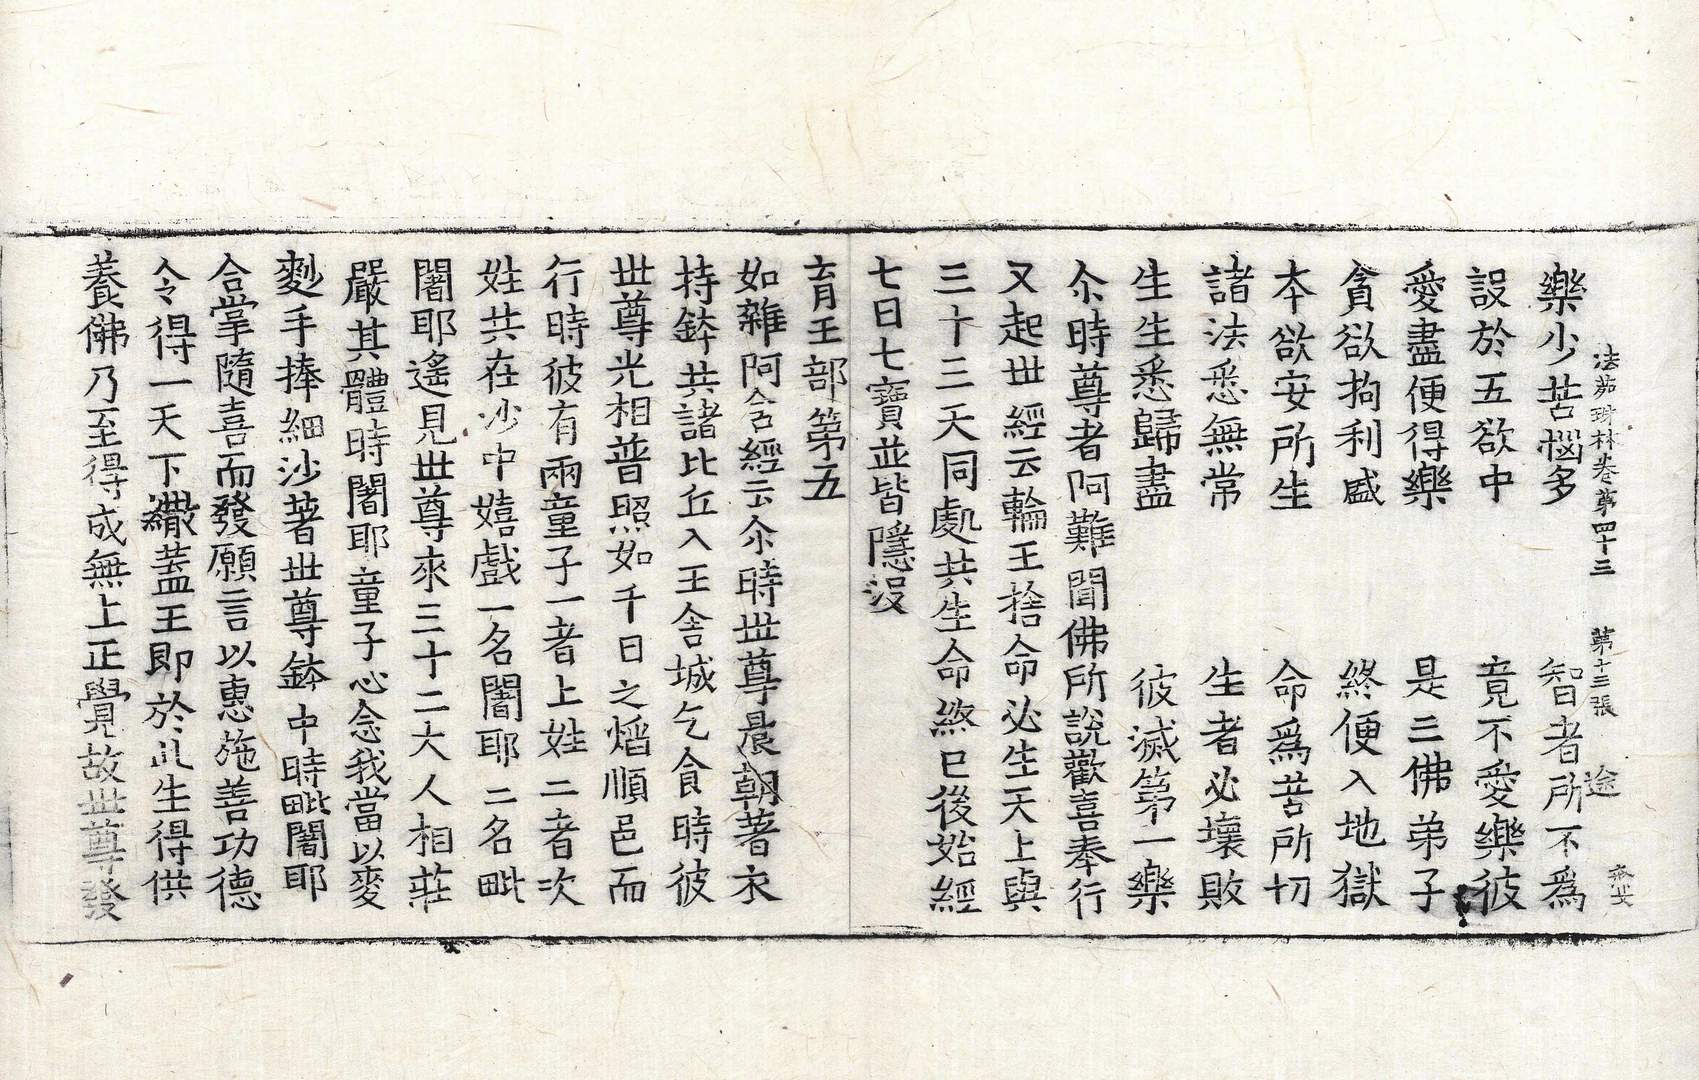 法苑珠林卷第四十三　第十三張　途
樂少苦惱多　智者所不爲
設於五欲中　竟不愛樂彼
愛盡便得樂　是三佛弟子
貪欲拘利盛　終便入地獄
本欲安所生　命爲苦所切
諸法悉無常　生者必壞敗
生生悉歸盡　彼滅第一樂
尒時尊者阿難聞佛所說歡喜奉行
又起世經云輪王捨命必生天上與
三十三天同處共生命終已後始經
七日七寶並皆隱沒
育王部第五
如雜阿含經云尒時世尊晨朝著衣
持鉢共諸比丘入王舍城乞食時彼
世尊光相普照如千日之熖順邑而
行時彼有兩童子一者上姓二者次
姓共在沙中嬉戲一名闍耶二名毗
闍耶遙見世尊來三十二大人相莊
嚴其體時闍耶童子心念我當以麥
麨手捧細沙著世尊鉢中時毗闍耶
合掌隨喜而發願言以惠施善功德
令得一天下繖蓋王即於此生得供
養佛乃至得成無上正覺故世尊發